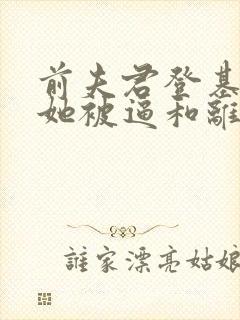 前夫君登基
她被逼和離
誰家漂亮姑娘